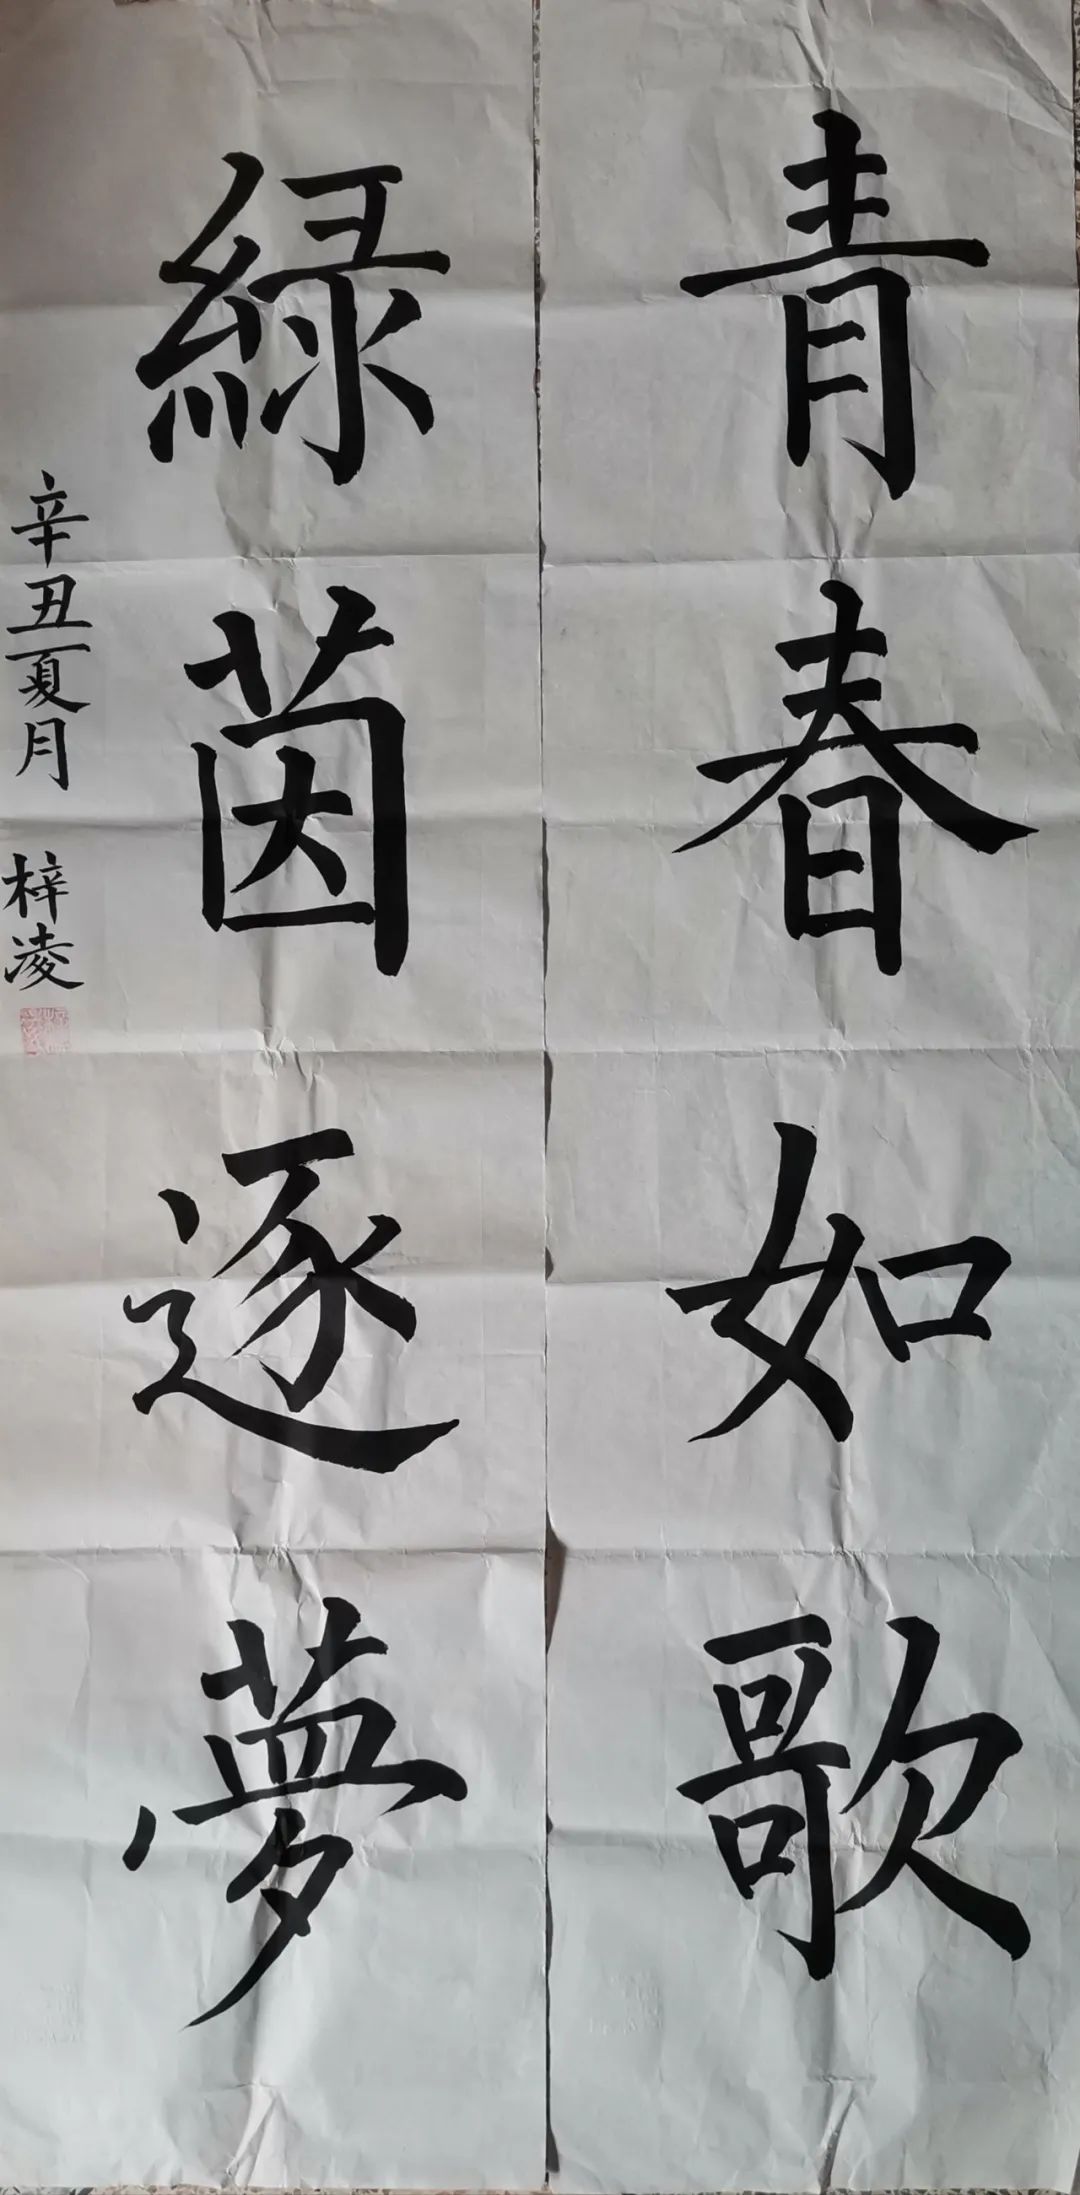 青春如歌
緑茵逐夢
辛丑夏月 梓凌